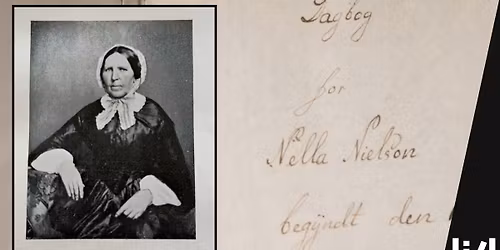 Dagbog
for
Nella Nielson
begyndt den